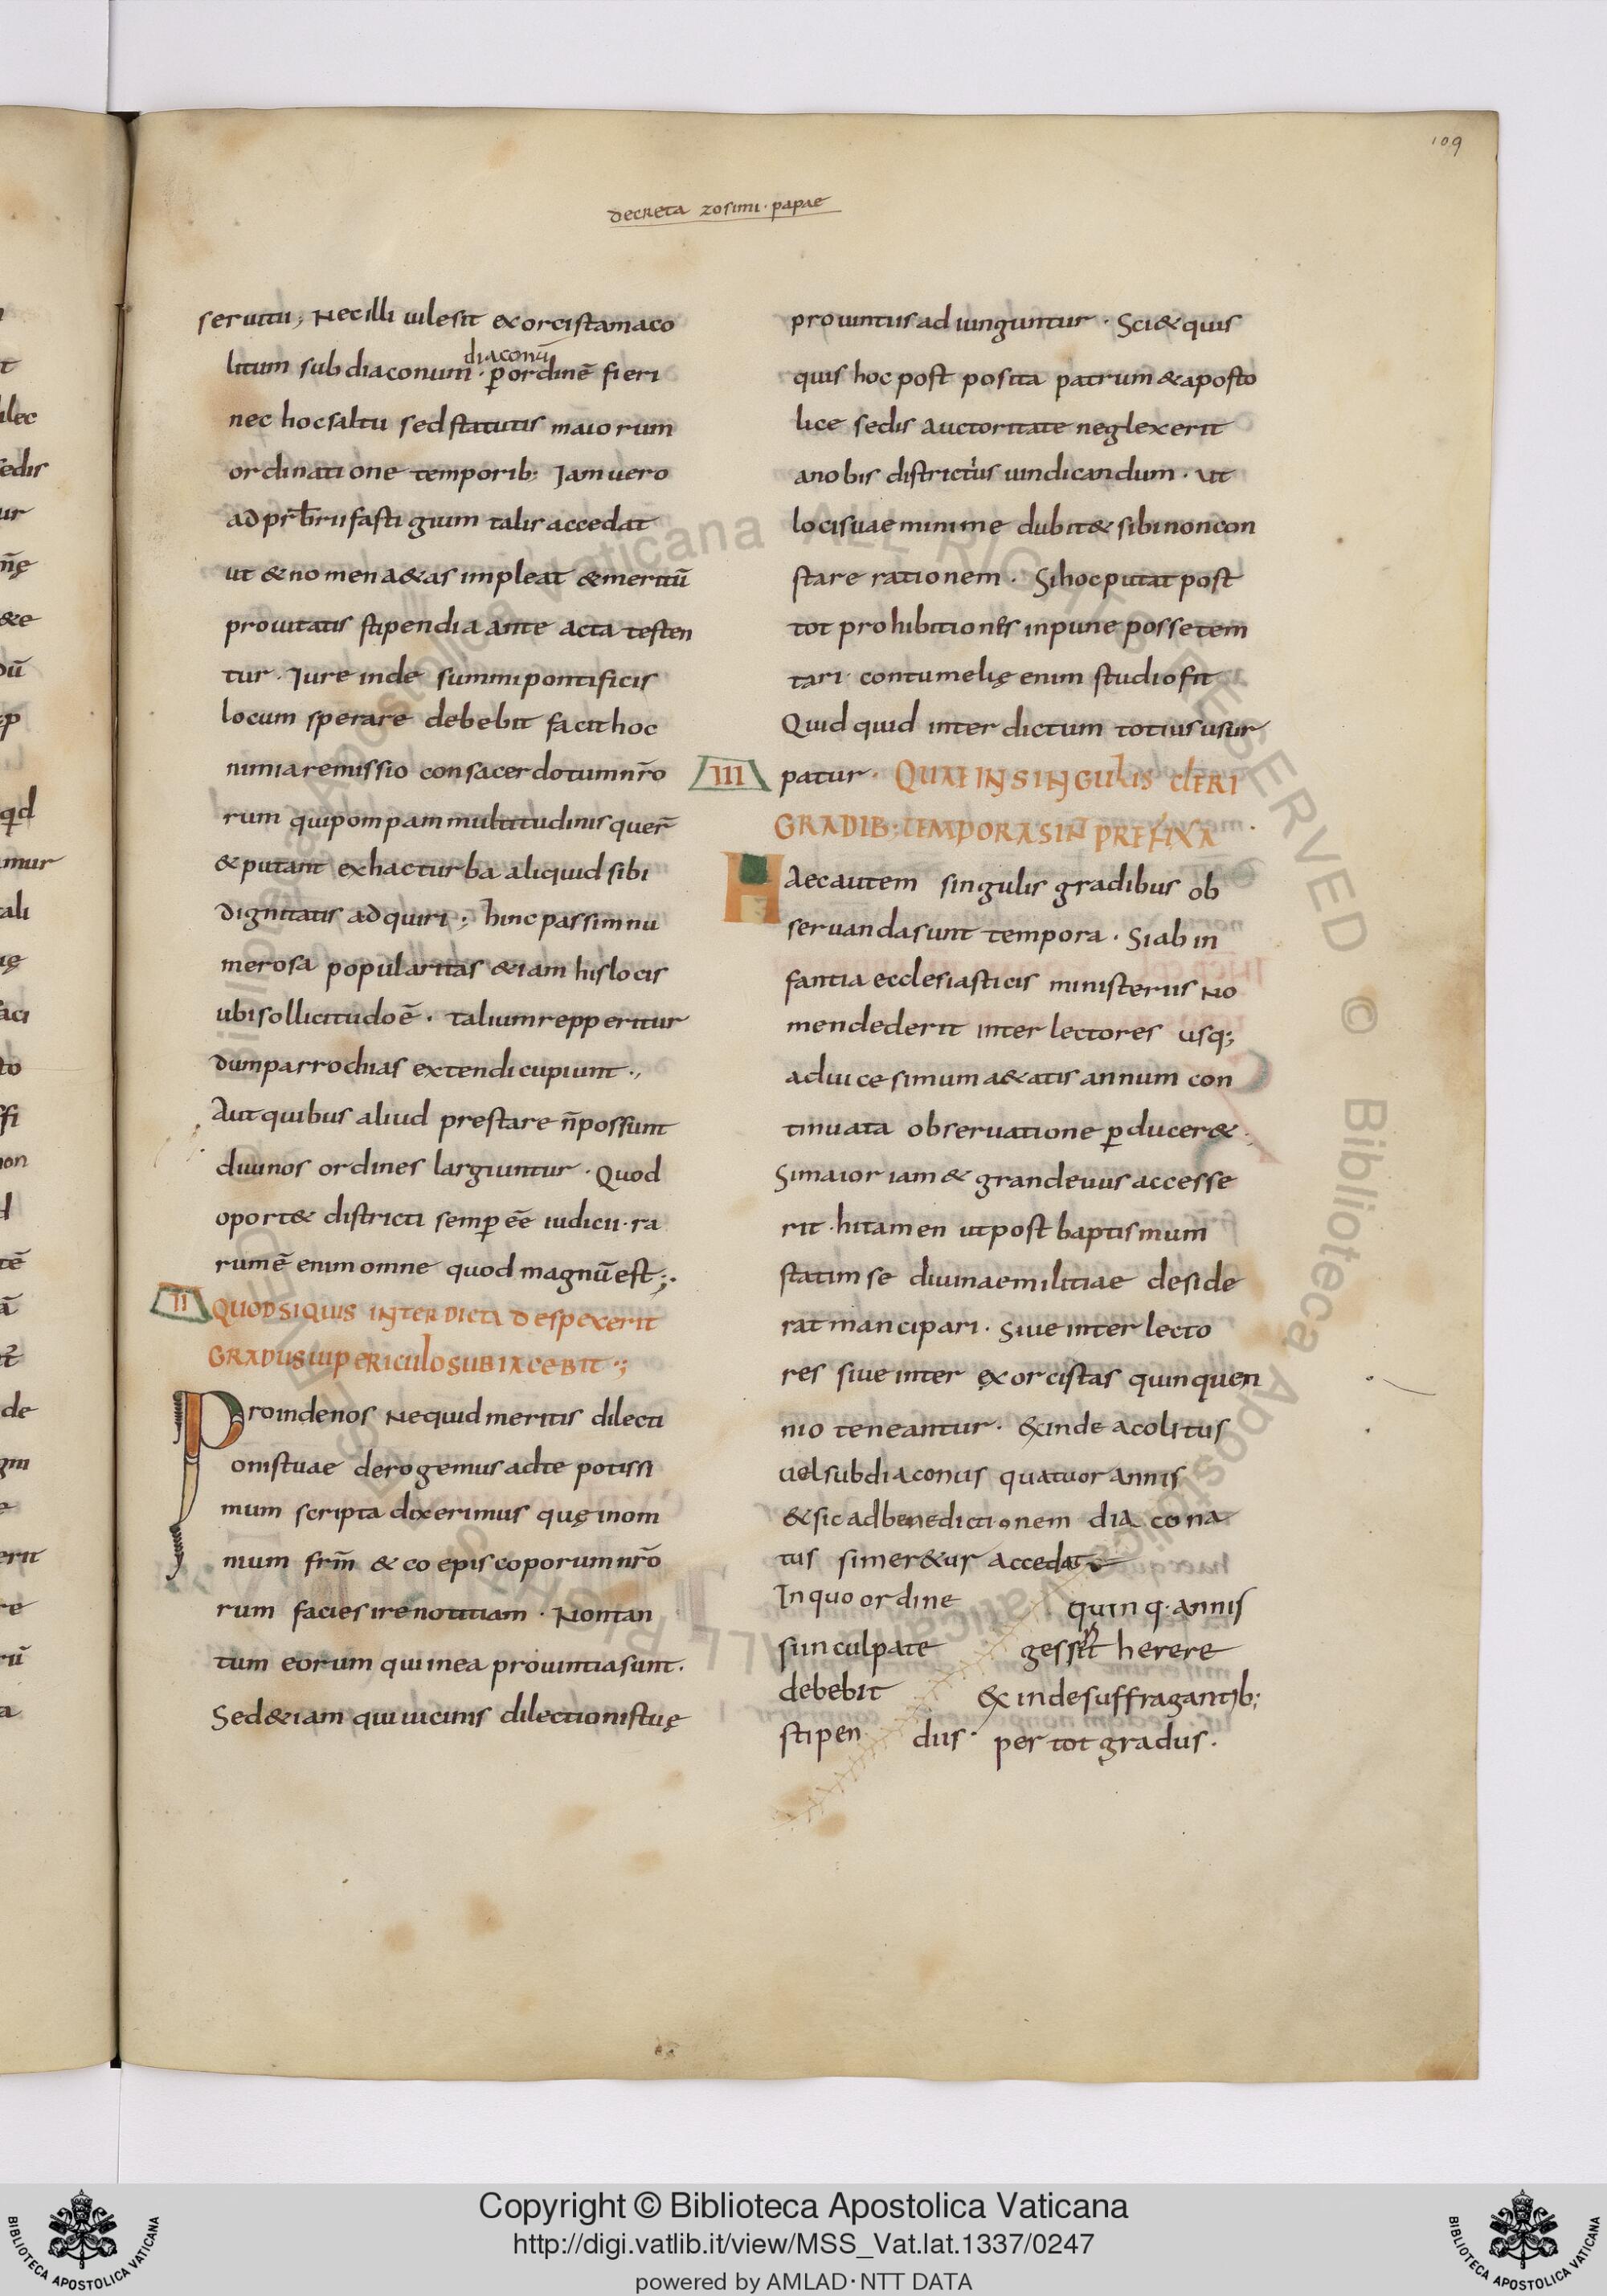 109
decreta zosimi · papae
seruitii; Nec illi uile sit exorcistam aco
diaconū
litum subdiaconum · ꝑ ordinē fieri
nec hoc saltu sed statutis maiorum
ordinatione temporib; Iam uero
ad prb̄rii fastigium talis accedat
ut & nomen a&as impleat & meritū
prouitatis stipendia ante acta testen
tur · Iure inde summi pontificis
locum sperare debebit facit hoc
nimia remissio consacerdotum nr̄o
rum qui pompam multitudinis quer̄
& putant ex hac turba aliquid sibi
dignitatis adquiri; hinc passim nu
merosa popularitas &iam his locis
ubi sollicitudo ē · talium repperitur
dum parrochias extendi cupiunt ·,
Aut quibus aliud prestare n̄ possunt
diuinos ordines largiuntur · Quod
oport& districti semꝑ eē iudicii · ra
rum ē enim omne quod magnū est;·
II QUOD SI QUIS INTERDICTA DESPEXERIT
GRADUS UI PERICULO SUBIACEBIT·;
Proinde nos Ne quid meritis dilecti
onis tuae derogemus ad te potissi
mum scripta dixerimus quę in om
nium frm̄ & coepiscoporum nr̄o
rum facies ire notitiam · Non tan
tum eorum qui in ea prouintia sunt.
Sed &iam qui uicinis dilectionis tuę
prouintiis adiunguntur · Sci& quis
quis hoc post posita patrum & aposto
lice sedis auctoritate neglexerit
a nobis districtius uindicandum · ut
loci suae minime dubit& sibi non con
stare rationem · Si hoc putat post
tot prohibitiones inpune posse tem
tari· contumelię enim studio fit
Quid quid interdictum totius usur
III patur · QUAE IN SINGULIS CLERI
GRADIB; TEMPORA SINT PREFIXA ·
Haec autem singulis gradibus ob
seruanda sunt tempora · Si ab in
fantia ecclesiasticis ministeriis No
men dederit inter lectores usq;
ad uicesimum a&atis annum con
tinuata obseruatione ꝑducer&·
Si maior iam & grandeuus accesse
rit · hi tamen ut post baptismum
statim se diuinae militiae deside
rat mancipari · Siue inter lecto
res siue inter exorcistas quinquen
nio teneantur · &xinde acolitus
uel subdiaconus quatuor annis
& sic ad benedictionem diacona
tus si mer&ur accedat
In quo ordine quinq· annis
si inculpate gesserit herere
debebit &xinde suffragantib;
stipen diis · per tot gradus ·
Copyright © Biblioteca Apostolica Vaticana
http://digi.vatlib.it/view/MSS_Vat.lat.1337/0247
powered by AMLAD·NTT DATA